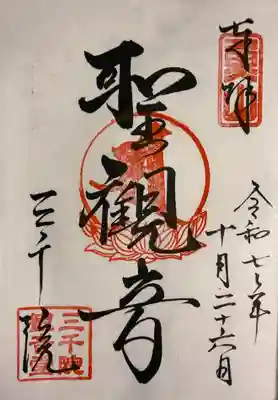 奉拝
令和七年
十月二十六日
聖観音
三千院